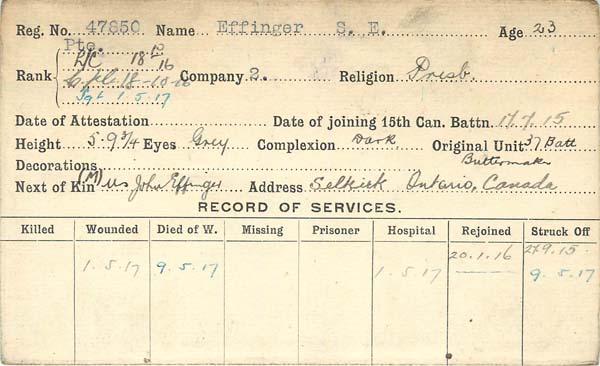 Reg. No. 47850 Name Effinger S. E. Age 23
Pte.
L/C 18 12/16
Rank Cpl. 18-10-16 Company 2. Religion Presb.
Sgt 1.5.17
Date of Attestation Date of joining 15th Can. Battn. 17.7.15
Height 5-9 3/4 Eyes Grey Complexion Dark Original Unit 37 Batt
Decorations Buttermaker
Next of Kin (M) Mrs John Effinger Address Selkirk Ontario, Canada
RECORD OF SERVICES.
Killed Wounded Died of W. Missing Prisoner Hospital Rejoined Struck Off
20.1.16 27.9.15
1.5.17 9.5.17 1.5.17 9.5.17